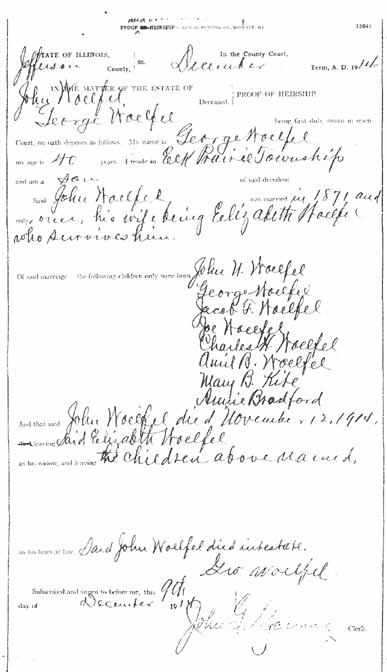 PROOF OF HEIRSHIP
13641
STATE OF ILLINOIS, ss. In the County Court,
Jefferson County, December Term, A. D. 1914.
IN THE MATTER OF THE ESTATE OF
John Woelfel, Deceased. PROOF OF HEIRSHIP.
George Woelfel being first duly sworn in open
Court, on oath deposes as follows. My name is George Woelfel
my age is 40 years. I reside in Elk Prairie Township
and am a son of said decedent.
Said John Woelfel was married in 1871 and
only once, his wife being Eelizabeth Woelfel
who survives him.
Of said marriage the following children only were born John N. Woelfel
George Woelfel
Jacob F. Woelfel
Joe Woelfel
Charles W Woelfel
Amil B. Woelfel
Mary B. Kite
Annie Bradford
And that said John Woelfel died November 12, 1914,
leaving Said Elizabeth Woelfel
as his widow, and leaving the children above named,
as his heirs at law Said John Woelfel died intestate.
Geo Woelfel
Subscribed and sworn to before me, this 9th
day of December 1914
John G. Young Clerk.